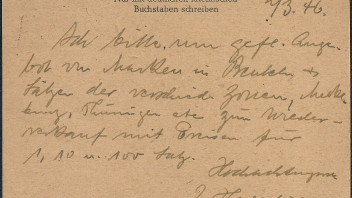 Nur mit deutlichen lateinischen
Buchstaben schreiben
/3.46.
Ich bitte um gefl. Ange-
bot von Marken in Beuteln +
Sätzen der verschied. Zonen, Meckl.
burg, Thüringen etc zum Wieder-
verkauf mit Preisen für
1, 10 u. 100 Satz.
Hochachtungsvoll